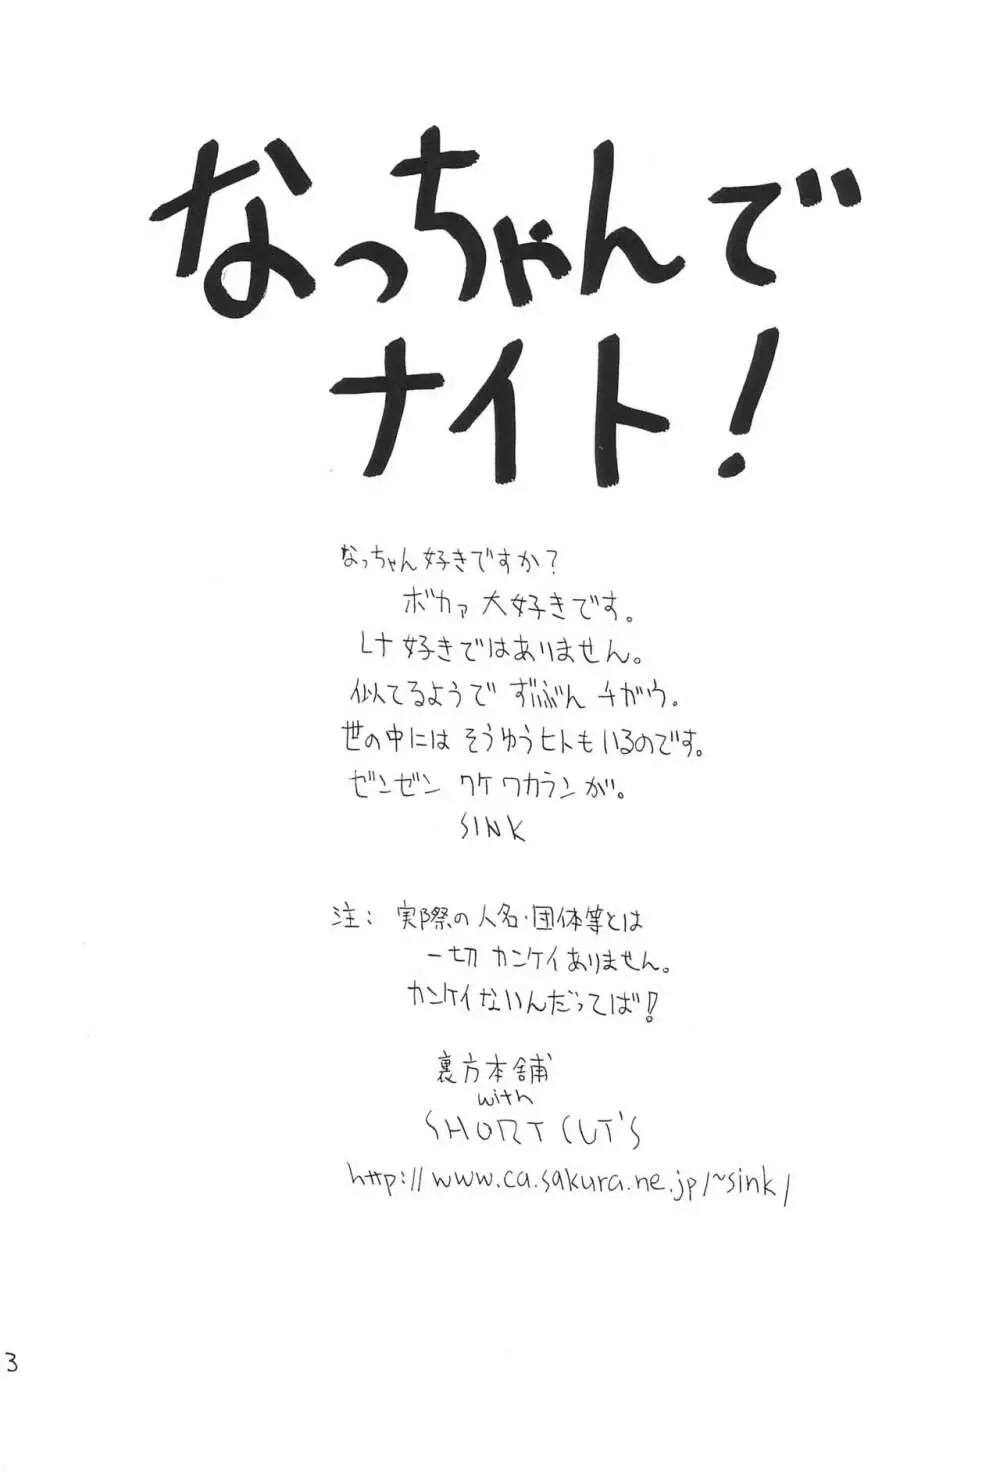 なっちゃんで
ナイト!
なっちゃん好きですか?
ボカァ 大好きです。
レナ好きではありません。
似てるようで ずいぶん チガウ。
世の中には そうゆうヒトもいるのです。
ゼンゼン ワケ ワカランが。
SINK
注: 実際の人名・団体等とは
一切 カンケイありません。
カンケイないんだってば!
裏方本舗
with
SHORT CUT'S
http://www.ca.sakura.ne.jp/~sink/
3